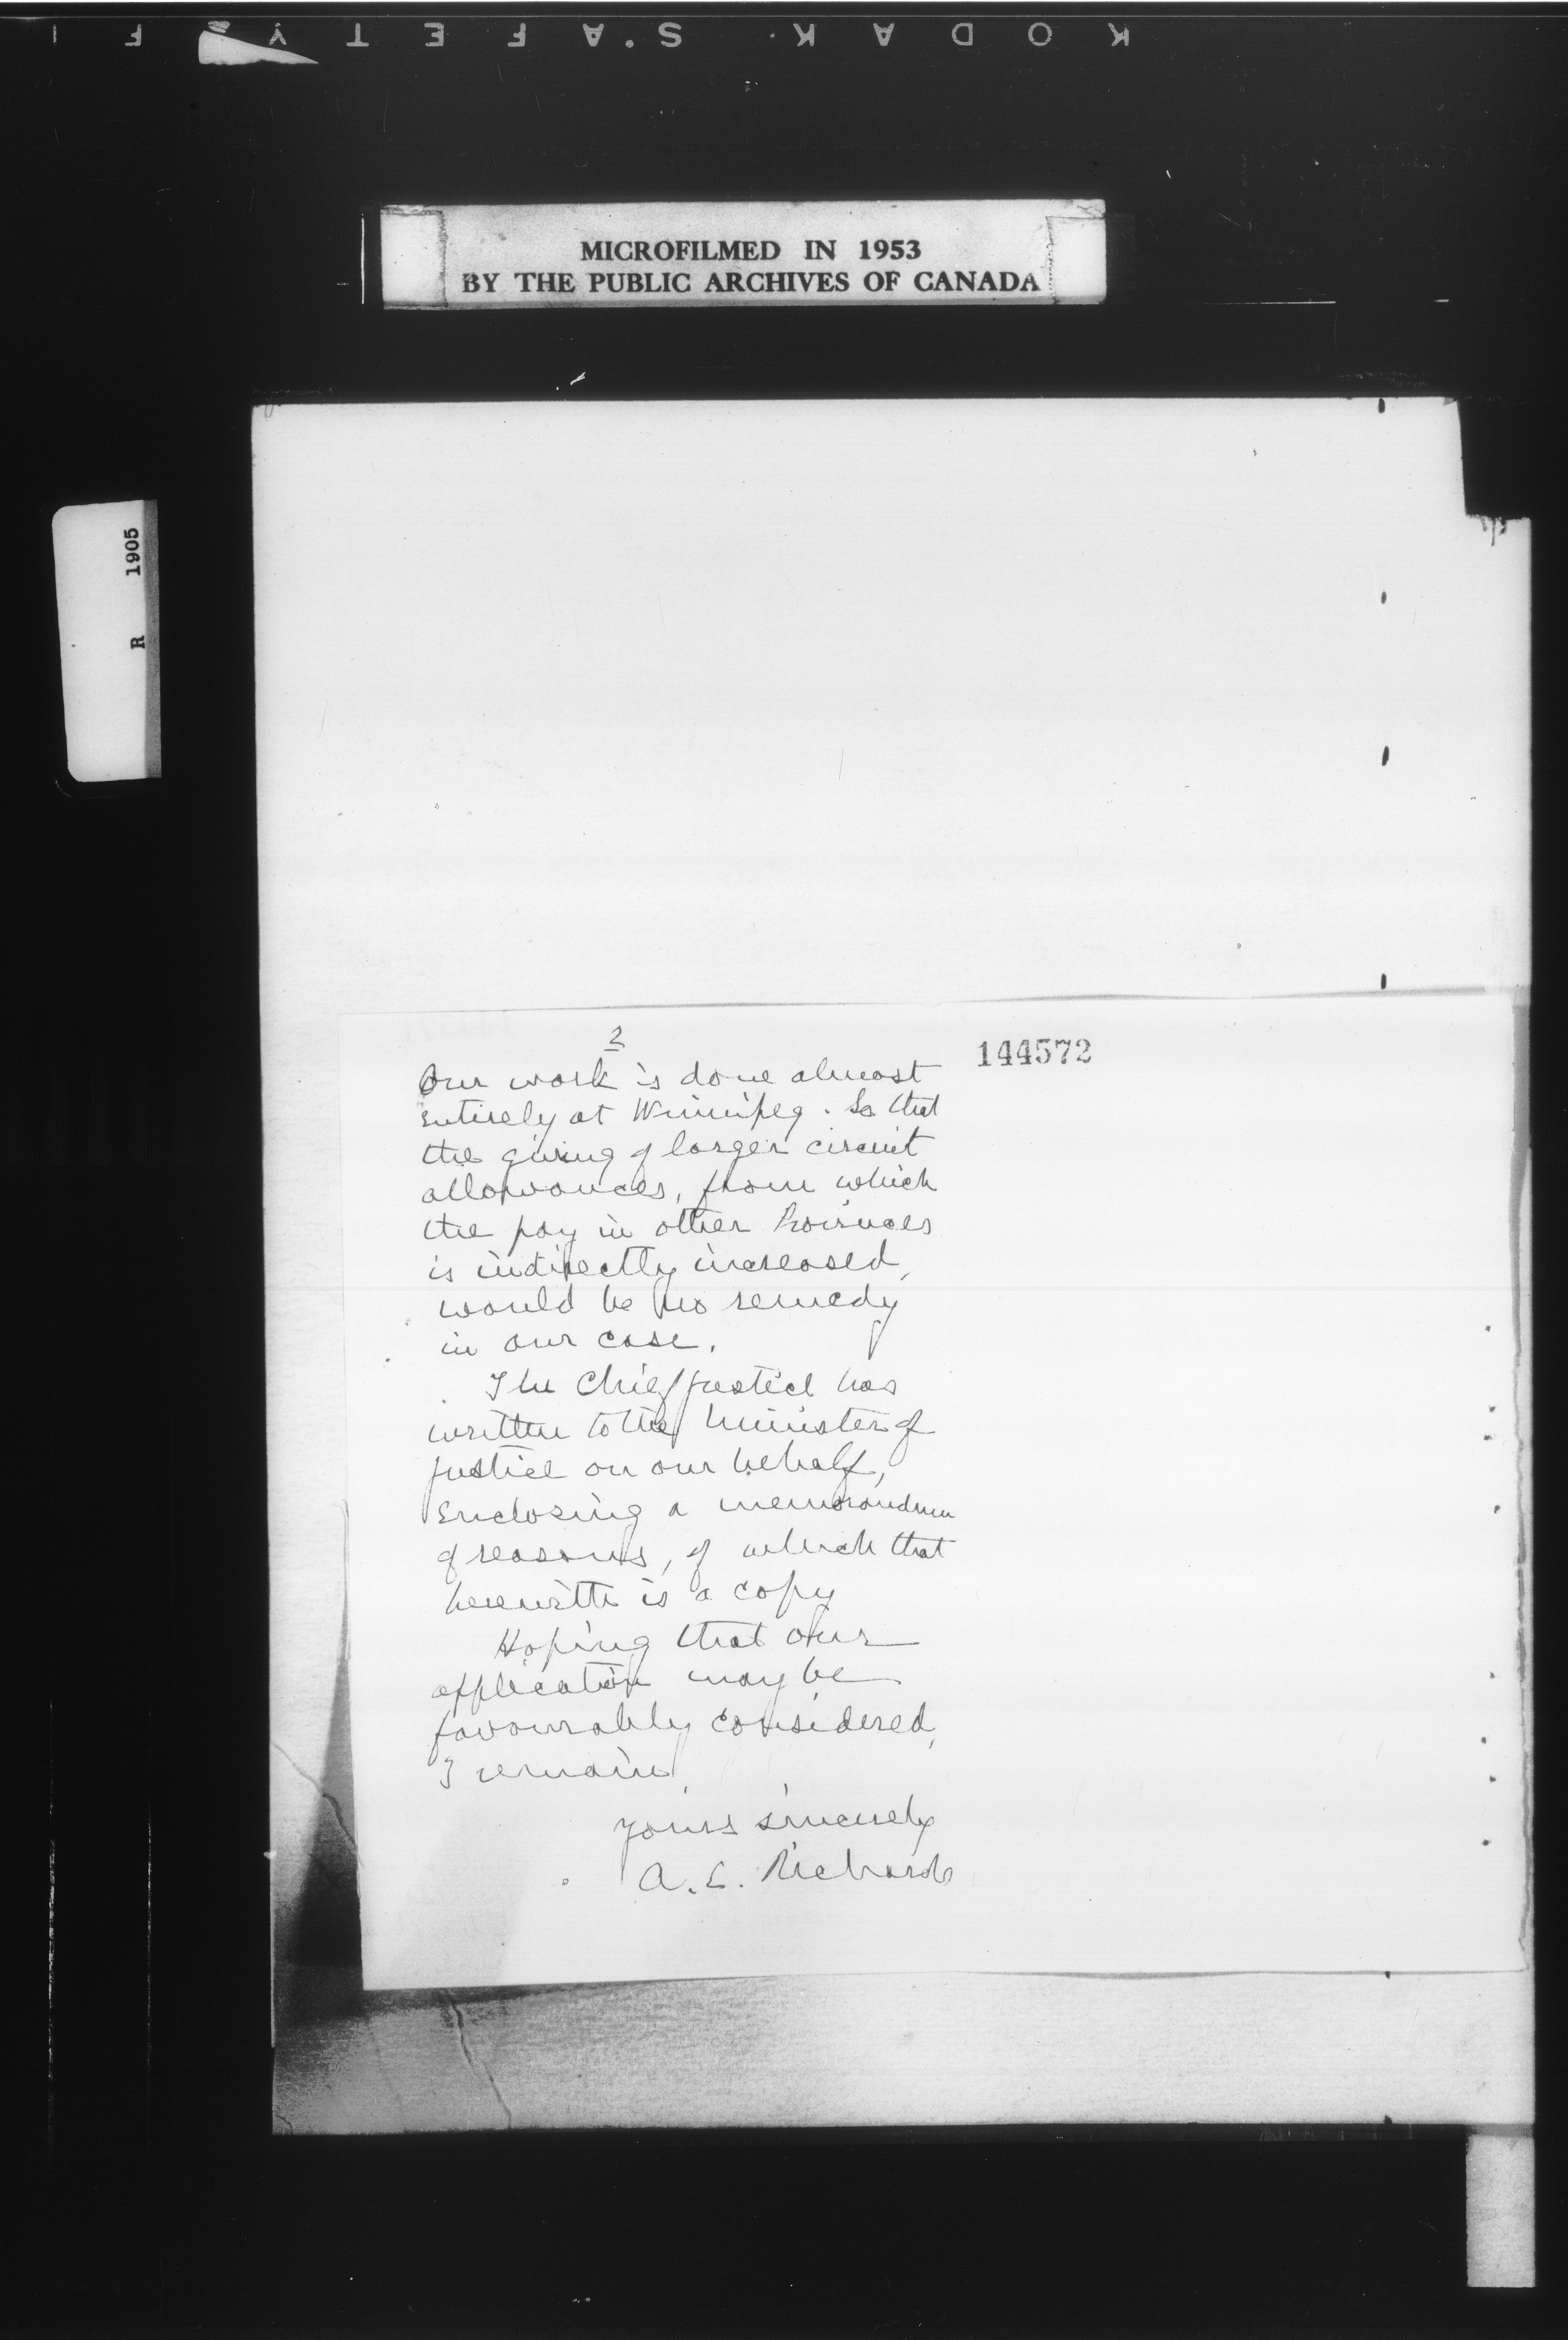 KODAK S.AFETY F
MICROFILMED IN 1953
BY THE PUBLIC ARCHIVES OF CANADA
R 1905
2
144572
Our work is done almost
entirely at Winnipeg. So that
the giving of larger circuit
allowances, from which
the pay in other Provinces
is indirectly increased,
would be no remedy
in our case.
The Chief Justice has
written to the Minister of
Justice on our behalf,
enclosing a memorandum
of reasons, of which that
herewith is a copy
Hoping that our
application may be
favourably considered,
I remain,
Yours sincerely
A. E. Richards